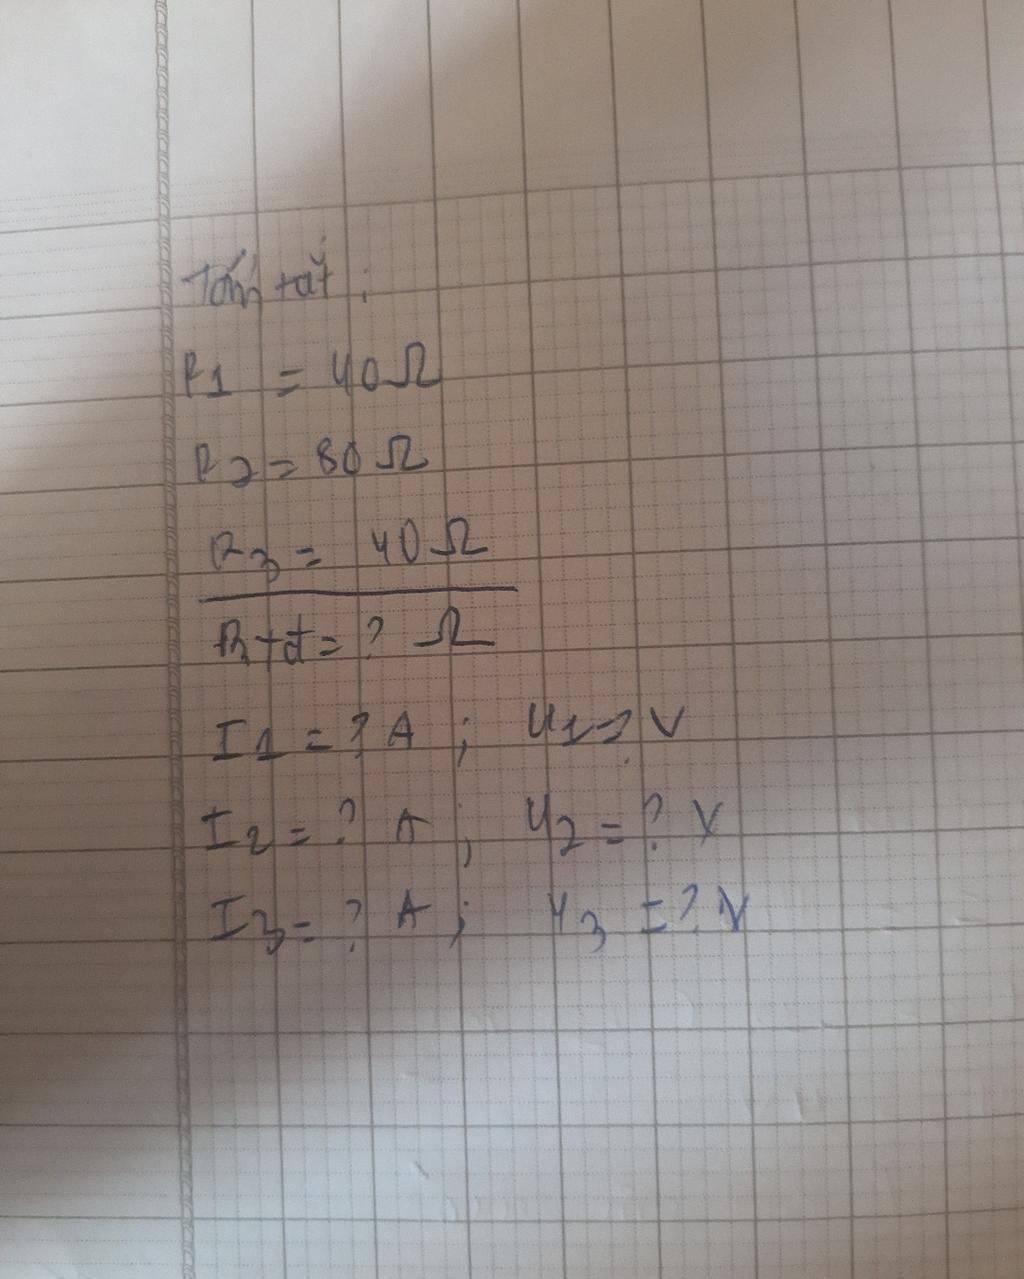 Tóm tắt :
R1 = 40Ω
R2 = 80Ω
R3 = 40Ω
Rtđ = ? Ω
I1 = ? A ; U1 = ? V
I2 = ? A ; U2 = ? V
I3 = ? A ; U3 = ? V